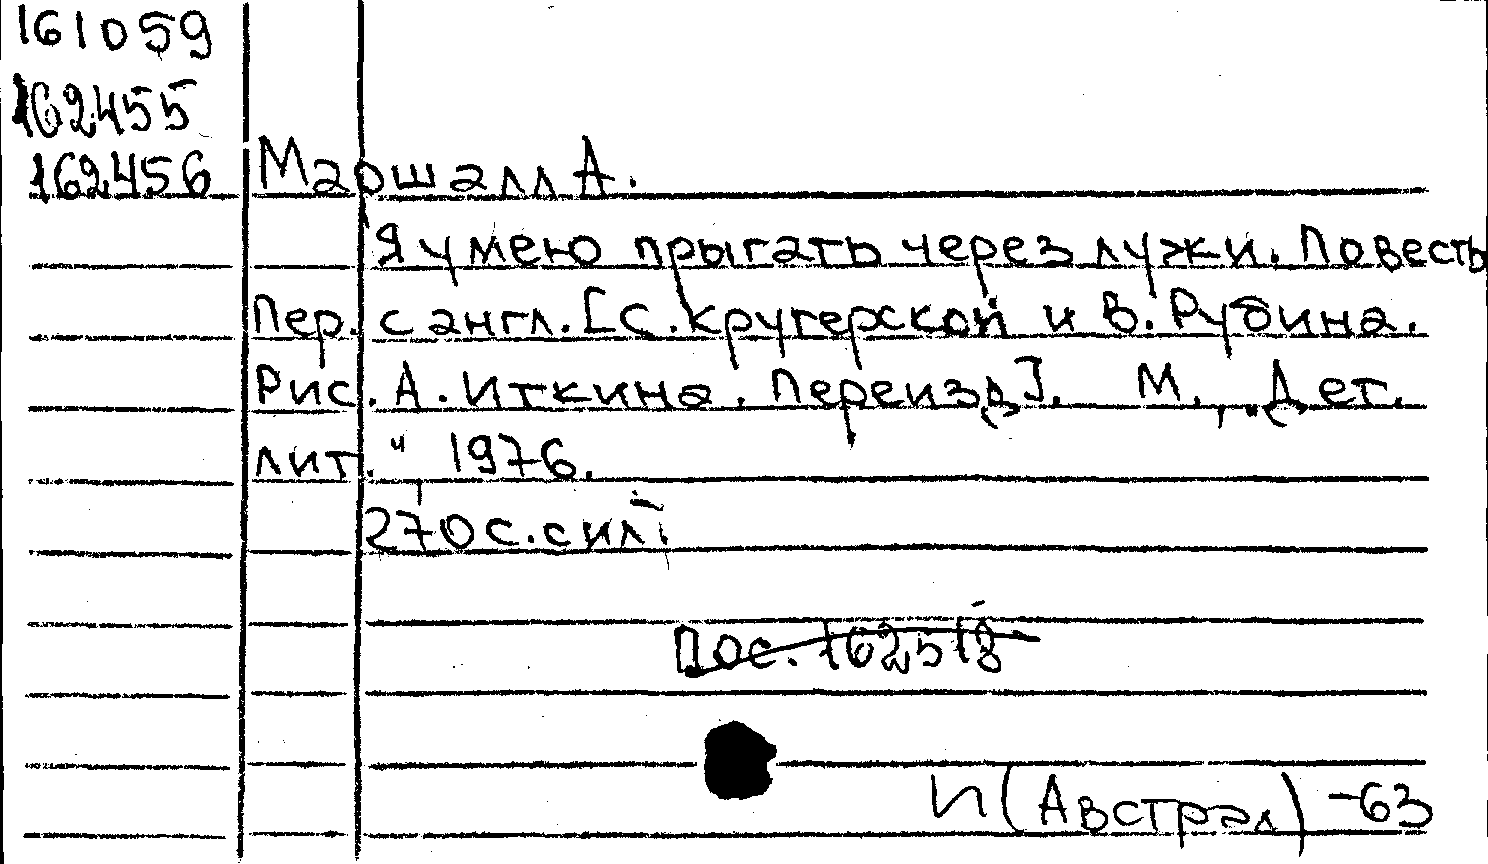 161059
162455
162456 Маршалл А.
Я умею прыгать через лужи. Повесть
Пер. с англ. [С. Кругерской и В. Рубина.
Рис. А. Иткина. Переизд]. М., "Дет.
лит." 1976.
270 с. с ил.
Пос. 162518
И(Австрал) -63